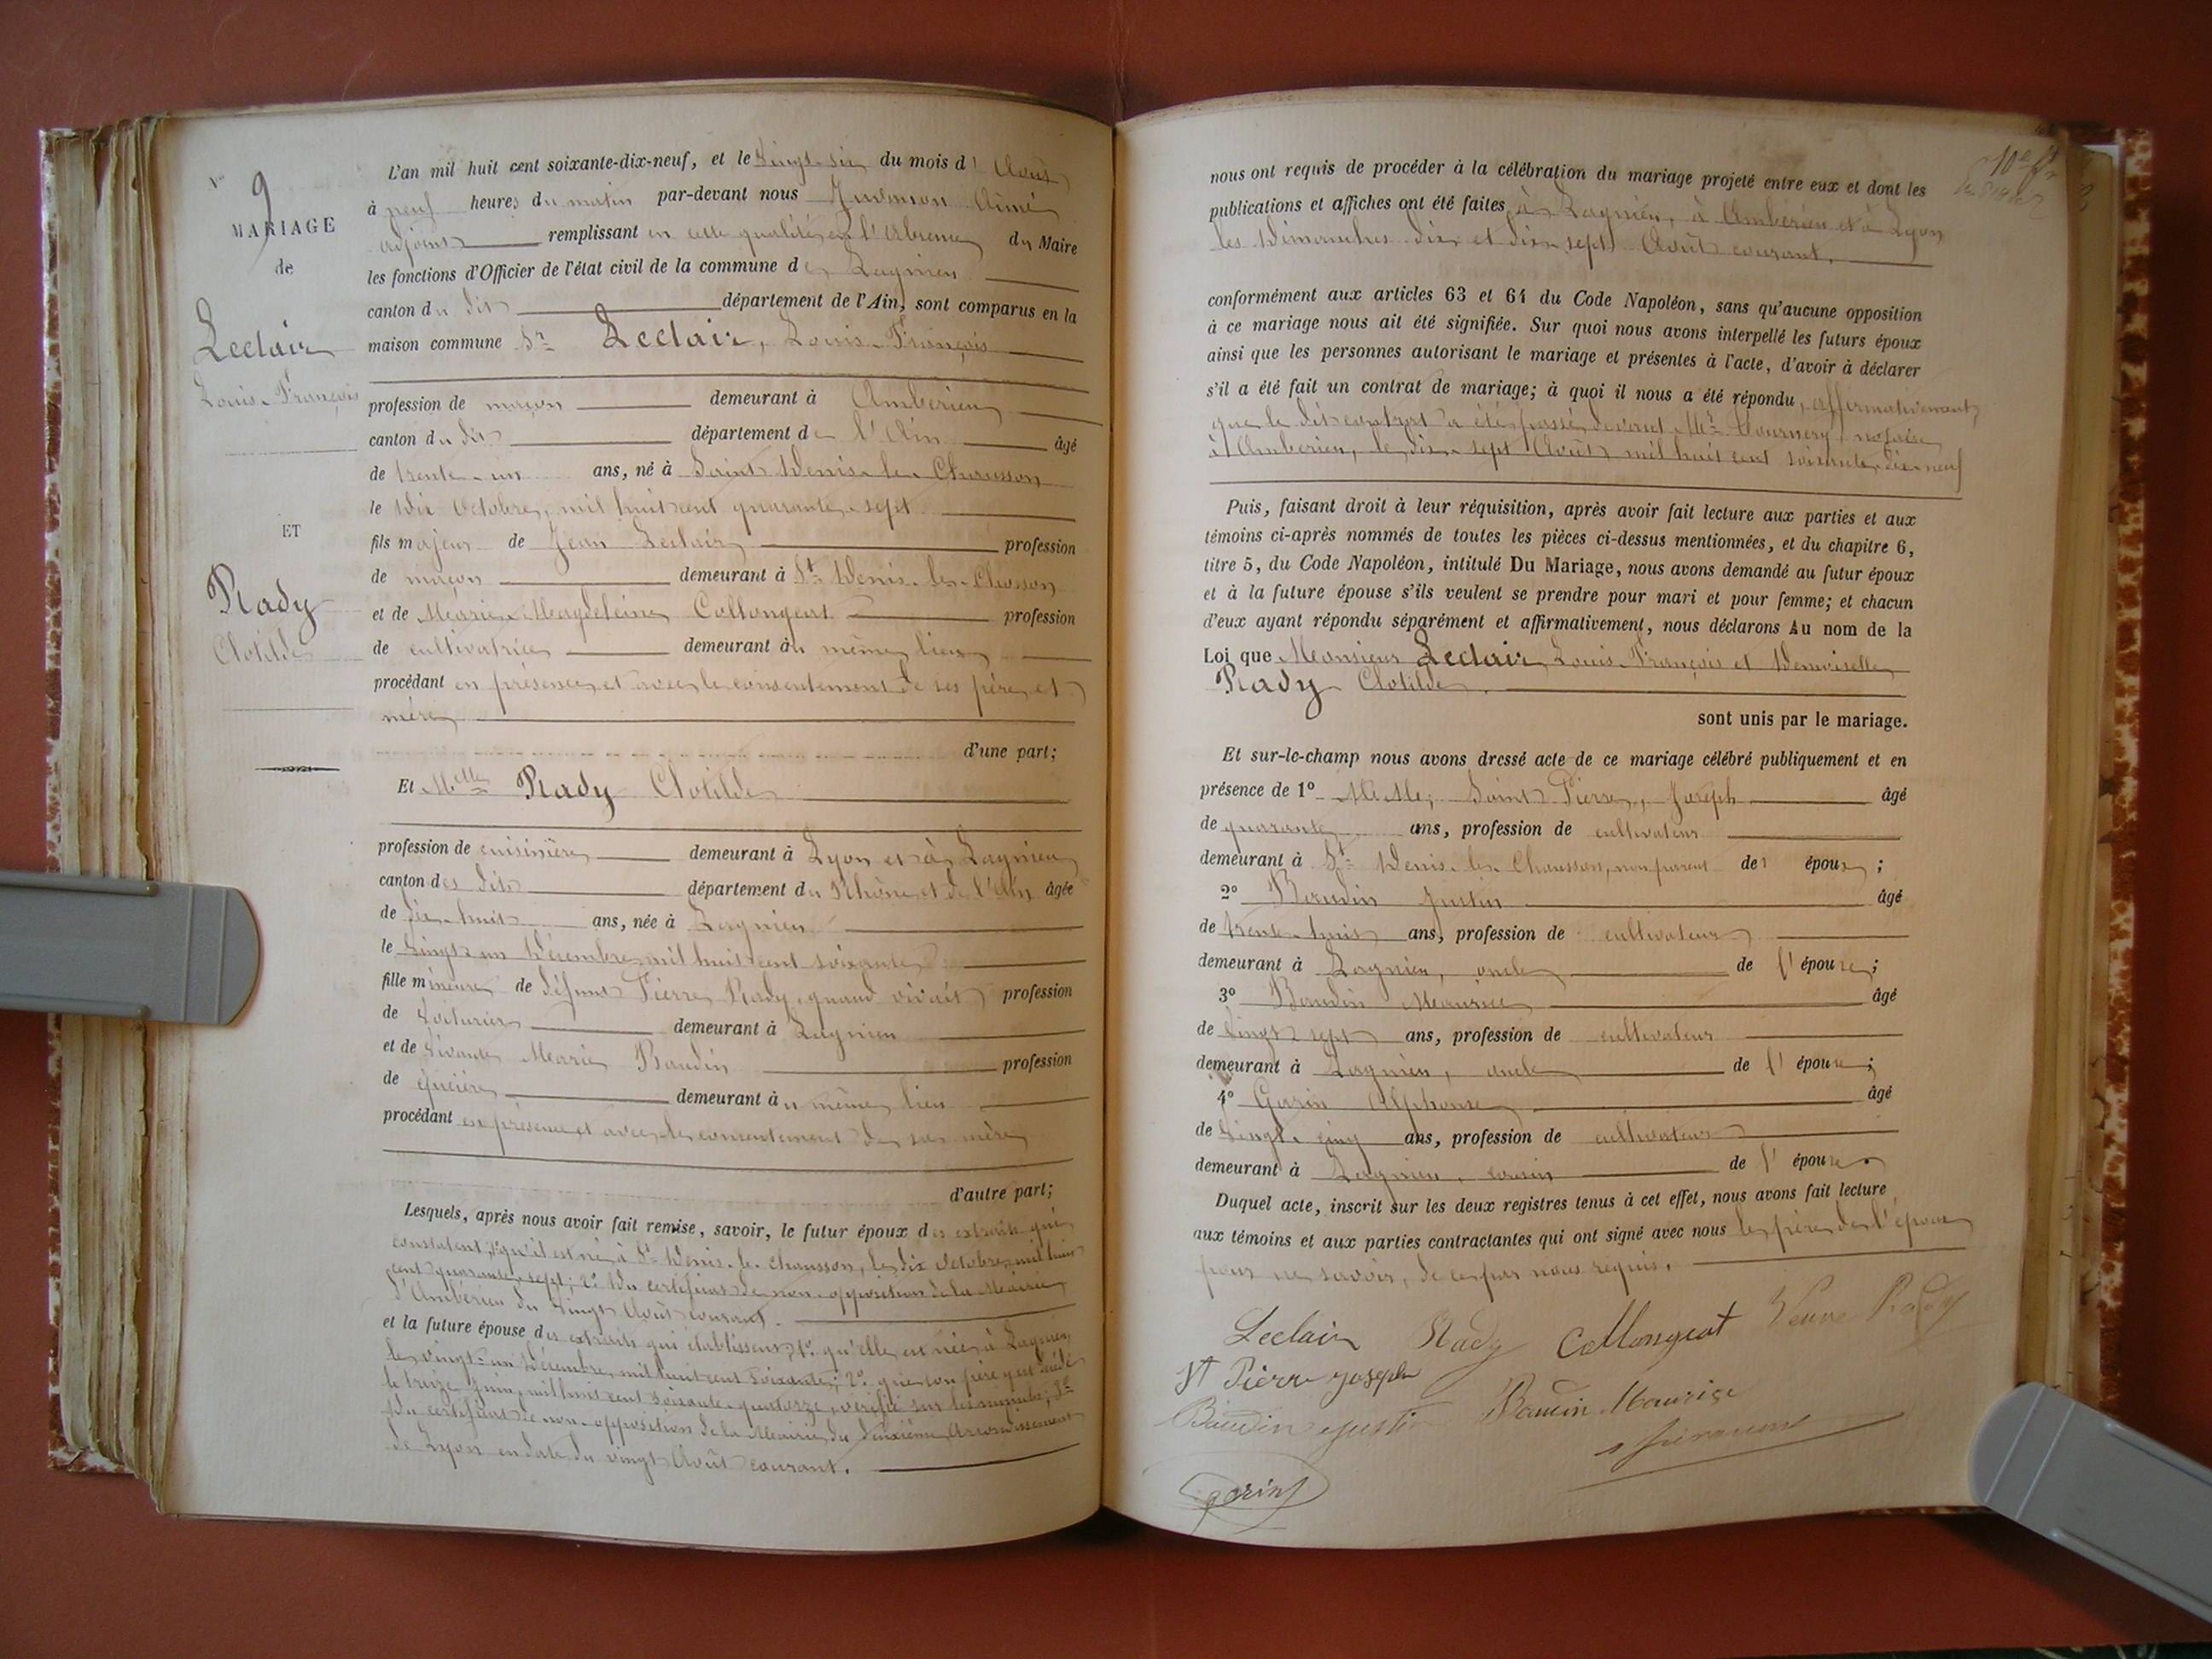 N° 9
MARIAGE
de
Leclair
Louis-François
ET
Rady
Clotilde
L'an mil huit cent soixante-dix-neuf, et le vingt-six du mois d'Août
à neuf heures du matin par-devant nous Aimé
adjoint remplissant en cette qualité, en l'absence du Maire
les fonctions d'Officier de l'état civil de la commune de Lagnieu
canton du dit département de l'Ain, sont comparus en la
maison commune Sr Leclair, Louis-François
profession de maçon demeurant à Ambérieu
canton du dit département de l'Ain âgé
de trente-un ans, né à Saint Denis-le-Chausson
le dix Octobre, mil huit cent quarante-sept
fils majeur de Jean Leclair profession
de maçon demeurant à St Denis-le-Chosson
et de Marie-Magdeleine Collongeat profession
de cultivatrice demeurant au même lieu
procédant en présence et avec le consentement de ses père et
mère
d'une part;
Et Melle Rady Clotilde
profession de cuisinière demeurant à Lyon et à Lagnieu
canton des dits département du Rhône et de l'Ain âgée
de dix-huit ans, née à Lagnieu
le vingt-un Décembre mil huit cent soixante
fille mineure de défunt Pierre Rady, quand vivait profession
de voiturier demeurant à Lagnieu
et de vivante Marie Baudin profession
de épicière demeurant au même lieu
procédant en présence et avec le consentement de sa mère
d'autre part;
Lesquels, après nous avoir fait remise, savoir, le futur époux des extraits qui
constatent, 1° qu'il est né à St Denis-le-Chausson, le dix Octobre mil huit
cent quarante-sept; 2° du certificat de non-opposition de la Mairie
d'Ambérieu du vingt Août courant.
et la future épouse des extraits qui établissent, 1° qu'elle est née à Lagnieu
le vingt-un Décembre, mil huit cent soixante; 2° que son père y est décédé
le treize Juin, mil huit cent soixante-quatorze, vérifié sur les minutes; 3°
du certificat de non-opposition de la Mairie du deuxième Arrondissement
de Lyon en date du vingt Août courant.
nous ont requis de procéder à la célébration du mariage projeté entre eux et dont les
publications et affiches ont été faites à Lagnieu, à Ambérieu et à Lyon
les Dimanches dix et dix-sept Août courant.
conformément aux articles 63 et 64 du Code Napoléon, sans qu'aucune opposition
à ce mariage nous ait été signifiée. Sur quoi nous avons interpellé les futurs époux
ainsi que les personnes autorisant le mariage et présentes à l'acte, d'avoir à déclarer
s'il a été fait un contrat de mariage; à quoi il nous a été répondu, affirmativement,
que le dit contrat a été passé devant Me notaire
à Ambérieu, le dix-sept Août mil huit cent soixante-dix-neuf
Puis, faisant droit à leur réquisition, après avoir fait lecture aux parties et aux
témoins ci-après nommés de toutes les pièces ci-dessus mentionnées, et du chapitre 6,
titre 5, du Code Napoléon, intitulé Du Mariage, nous avons demandé au futur époux
et à la future épouse s'ils veulent se prendre pour mari et pour femme; et chacun
d'eux ayant répondu séparément et affirmativement, nous déclarons Au nom de la
Loi que Monsieur Leclair, Louis-François et Demoiselle
Rady Clotilde.
sont unis par le mariage.
Et sur-le-champ nous avons dressé acte de ce mariage célébré publiquement et en
présence de 1° MM. Saint Pierre, Joseph âgé
de quarante ans, profession de cultivateur
demeurant à St Denis-le-Chausson, non parent des époux;
2° Baudin Justin âgé
de trente-huit ans, profession de cultivateur
demeurant à Lagnieu, oncle de l'épouse;
3° Baudin Maurice âgé
de vingt-sept ans, profession de cultivateur
demeurant à Lagnieu, oncle de l'épouse;
4° Garin Alphonse âgé
de vingt-cinq ans, profession de cultivateur
demeurant à Lagnieu, cousin de l'épouse.
Duquel acte, inscrit sur les deux registres tenus à cet effet, nous avons fait lecture
aux témoins et aux parties contractantes qui ont signé avec nous le père de l'époux
pour ne savoir, de ce par nous requis.
Leclair Rady Collongeat Veuve Rady
St Pierre joseph
Baudin justin Baudin Maurice
garin